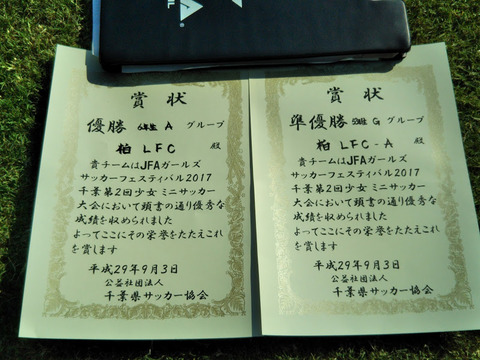 賞状
優勝 6年生 A グループ
柏 LFC 殿
貴チームはJFAガールズ
サッカーフェスティバル2017
千葉第2回少女ミニサッカー
大会において頭書の通り優秀な
成績を収められました
よってここにその栄誉をたたえこれ
を賞します
平成29年9月3日
公益社団法人
千葉県サッカー協会
賞状
準優勝 G グループ
柏 LFC-A 殿
貴チームはJFAガールズ
サッカーフェスティバル2017
千葉第2回少女ミニサッカー
大会において頭書の通り優秀な
成績を収められました
よってここにその栄誉をたたえこれ
を賞します
平成29年9月3日
公益社団法人
千葉県サッカー協会